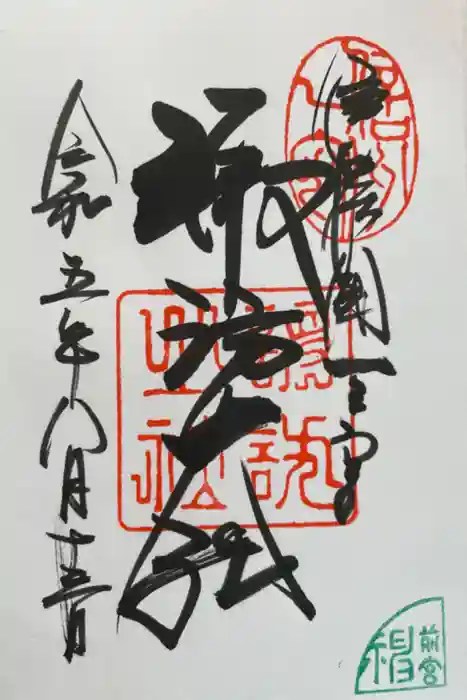 信濃國一之宮
諏訪大社
令和五年八月十三日
諏訪
前宮